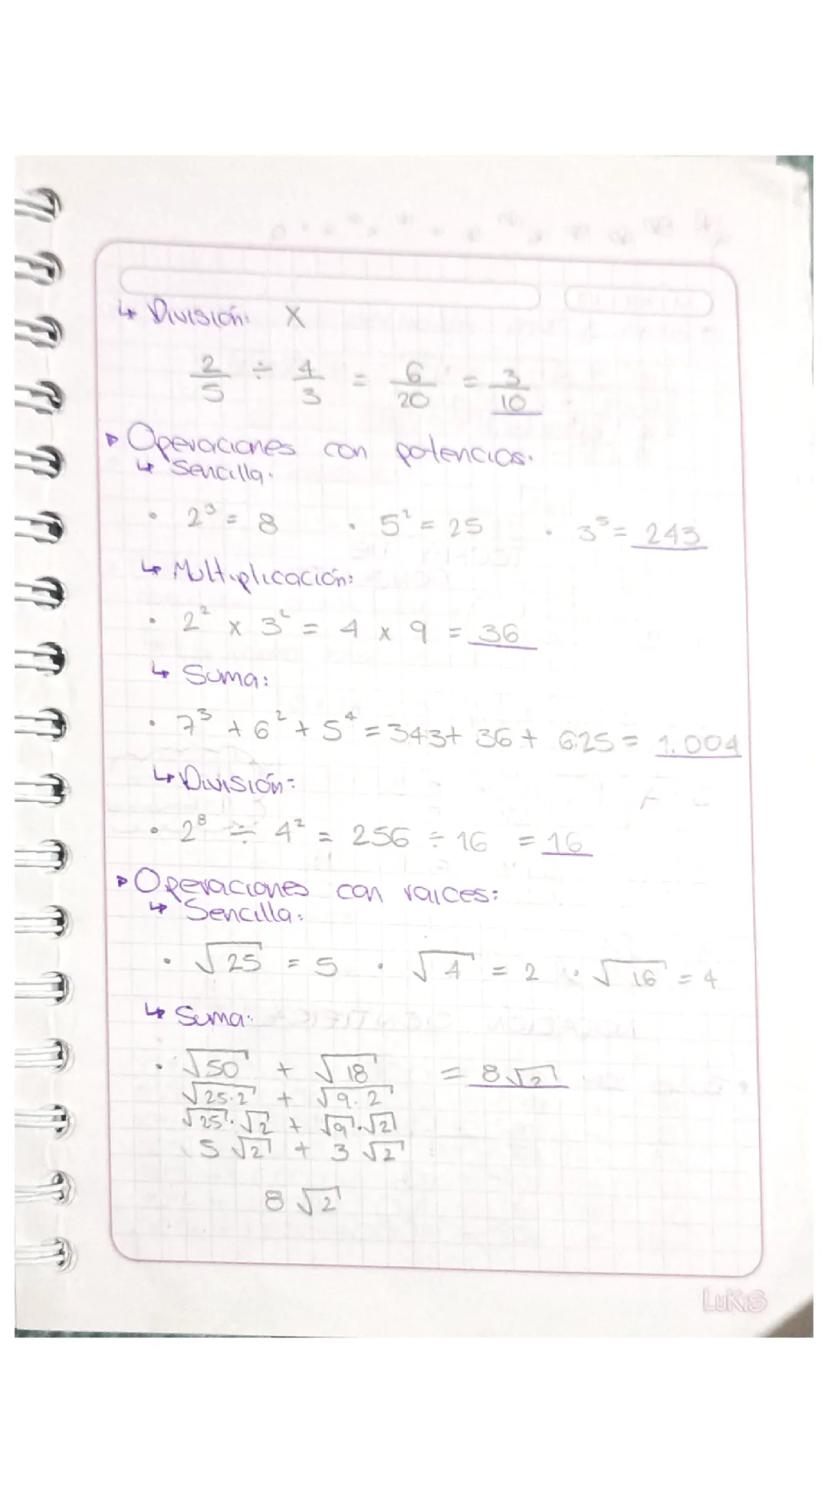 ↳ División: X
2/5 ÷ 4/3 = 6/20 = 3/10
▸ Operaciones con potencias.
↳ Sencilla.
• 2³ = 8 • 5² = 25 • 3⁵ = 243
↳ Multiplicación:
• 2² x 3² = 4 x 9 = 36
↳ Suma:
• 7³ + 6² + 5⁴ = 343 + 36 + 625 = 1.004
↳ División:
• 2⁸ ÷ 4² = 256 ÷ 16 = 16
▸ Operaciones con raíces:
↳ Sencilla.
• √25 = 5 • √4 = 2 • √16 = 4
↳ Suma:
• √50 + √18 = 8√2
√25·2 + √9·2
√25·√2 + √9·√2
5√2 + 3√2
8√2
LUKIS